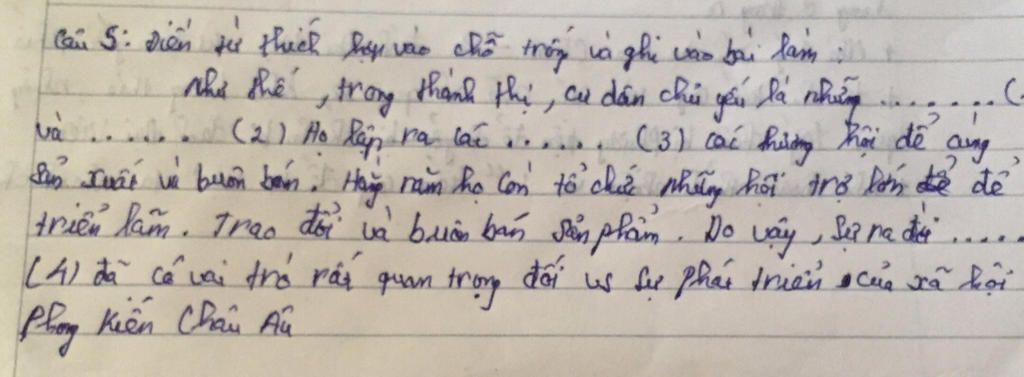 Câu 5: Điền từ thích hợp vào chỗ trống và ghi vào bài làm:
Như thế, trong thành thị, cư dân chủ yếu là những ....... (
và ...... (2) Họ lập ra các ...... (3) các thương hội để cùng
sản xuất và buôn bán. Hằng năm họ còn tổ chức những hội trợ lớn để để
triển lãm. Trao đổi và buôn bán sản phẩm. Do vậy, sự ra đời .....
(4) đã có vai trò rất quan trọng đối vs sự phát triển của xã hội
Phong Kiến Châu Âu